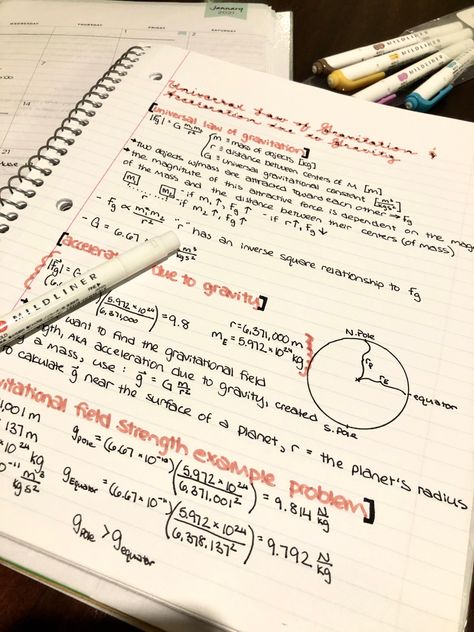 January
2021
WEDNESDAY THURSDAY FRIDAY SATURDAY
MILDLINER
MILDLINER
Universal Law of Gravitation &
Acceleration due to Gravity
[universal law of gravitation]
|Fg| = G m₁m₂/r²
m = mass of objects [kg]
r = distance between centers of M [m]
G = universal gravitational constant [m³/kg s²]
• TWO objects w/mass are attracted toward each other → Fg
the magnitude of this attractive force is dependent on the mag
of the mass and the distance between their centers (of mass)
[m₁] [m₂] - if m₁↑, Fg↑ - if r↑, Fg↓
- if m₂↑, Fg↑
- Fg ∝ m₁m₂/r² has an inverse square relationship to Fg
- G = 6.67 m³/kg s²
[acceleration due to gravity]
|Fg| = G
(5.972 × 10²⁴/6,371,000) = 9.8
r = 6,371,000 m
mE = 5.972 × 10²⁴ kg
N. Pole
rE
rE
equator
S. Pole
want to find the gravitational field
strength, AKA acceleration due to gravity, created
by a mass, use: g = G m/r²
to calculate g near the surface of a planet, r = the planet's radius
gravitational field strength example problem]
,001 m
137 m
10²⁴ kg
10⁻¹¹ m³/kg s²
gPole = (6.67 × 10⁻¹¹)(5.972 × 10²⁴/6,371,001²) = 9.814 N/kg
gEquator = (6.67 × 10⁻¹¹)(5.972 × 10²⁴/6,378,137²) = 9.792 N/kg
gPole > gequator
MILDLINER